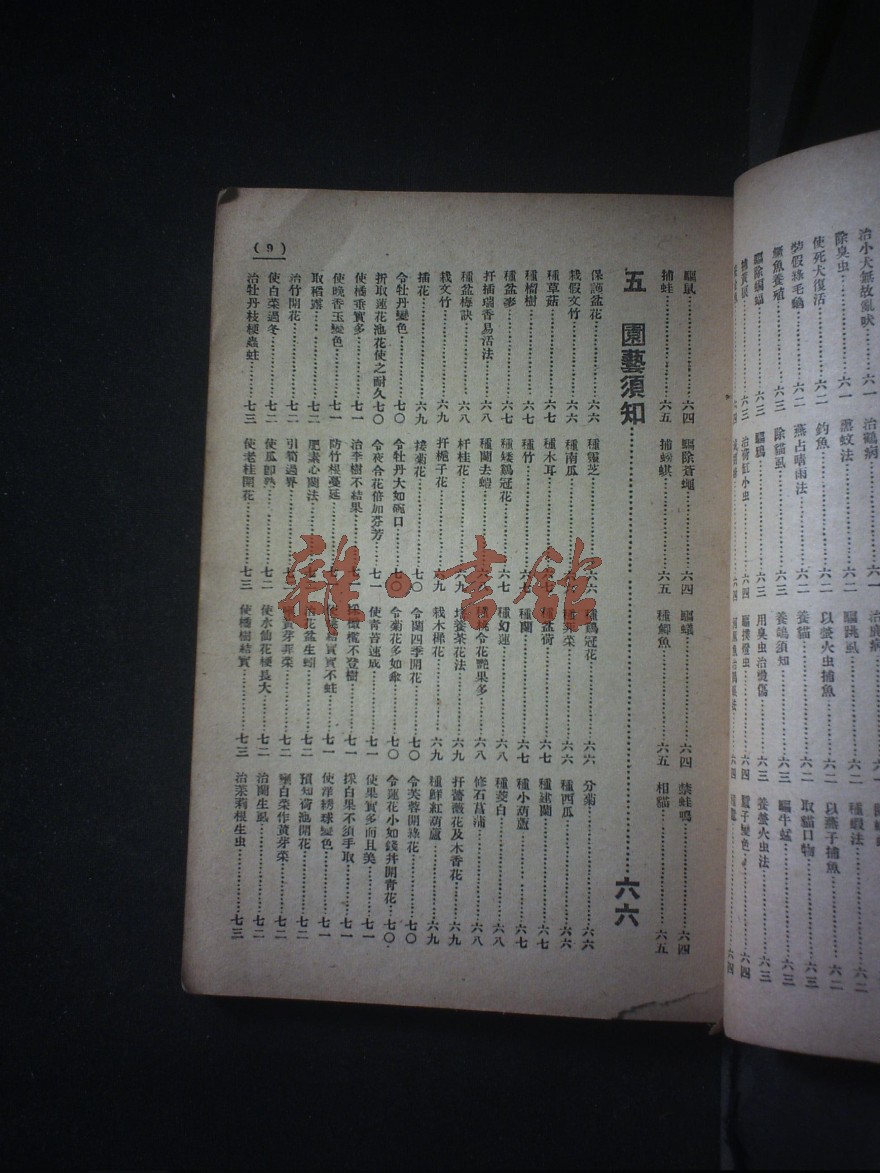 治小犬無故亂吠…六一 治鷄病…六一
除臭虫…六一 薰蚊法…六二 驅跳虱…六二 種蝦法…六二
使死犬復活…六二 釣魚…六二 以螢火虫捕魚…六二 以燕子捕魚…六二
裝假綠毛龜…六二 燕占晴雨法…六二 養貓…六二 取貓口物…六三
鱖魚養殖…六三 除貓虱…六三 養鴿須知…六三 驅牛蜢…六三
驅除…六三 驅鴉…六三 用臭虫治燙傷…六三 養螢火虫法…六三
治荷缸小虫…六四 驅撲燈虫…六四 子變色…六四
驅鼠…六四 驅除蒼蠅…六四 驅蟻…六四 禁蛙鳴…六四
捕蛙…六五 捕蜈蚣…六五 種鯽魚…六五 相貓…六五
五 園藝須知…六六
保護盆花…六六 種靈芝…六六 種鷄冠花…六六 分菊…六六
栽假文竹…六六 種南瓜…六六 種韭菜…六六 種西瓜…六六
種草菇…六七 種木耳…六七 種盆荷…六七 種小葫蘆…六七
種榴樹…六七 種竹…六七 種蘭…六七 種建蘭…六七
種盆蔘…六七 種矮鷄冠花…六七 種幻蓮…六八 種菱白…六八
扦插瑞香易活法…六八 種蘭去螘…六八 種桃令花艷果多…六八 修石菖蒲…六八
種盆梅訣…六八 杆桂花…六九 培養茶花法…六九 扦薔薇花及木香花…六九
栽文竹…六九 扦梔子花…六九 栽木樨花…六九 種鮮紅葫蘆…六九
插花…六九 接菊花…七〇 令蘭四季開花…七〇 令芙蓉開綠花…七〇
令牡丹變色…七〇 令牡丹大如碗口…七〇 令菊花多如傘…七〇 令蓮花小如錢幷開靑花…七〇
折取蓮花池花使之耐久七〇 令夜合花倍加芬芳…七一 使靑苔速成…七一 使果實多而且美…七一
使橘垂實多…七一 治李樹不結果…七一 採橄欖不登樹…七一 採白果不須手取…七一
使晚香玉變色…七一 防竹根蔓延…七一 使蓮結實實不蛀…七一 使洋綉球變色…七一
取稻露…七二 肥素心蘭法…七二 治花盆生蚓…七二 預知荷池開花…七二
治竹開花…七二 引筍過界…七二 壅黃芽韮菜…七二 壅白菜作黃芽菜…七二
使白菜過冬…七二 使瓜卽熟…七二 使水仙花梗長大…七二 治蘭生虱…七二
治牡丹枝梗蟲蛀…七三 使老桂開花…七三 使橘樹結實…七三 治茉莉根生虫…七三
(9)
雜·書館